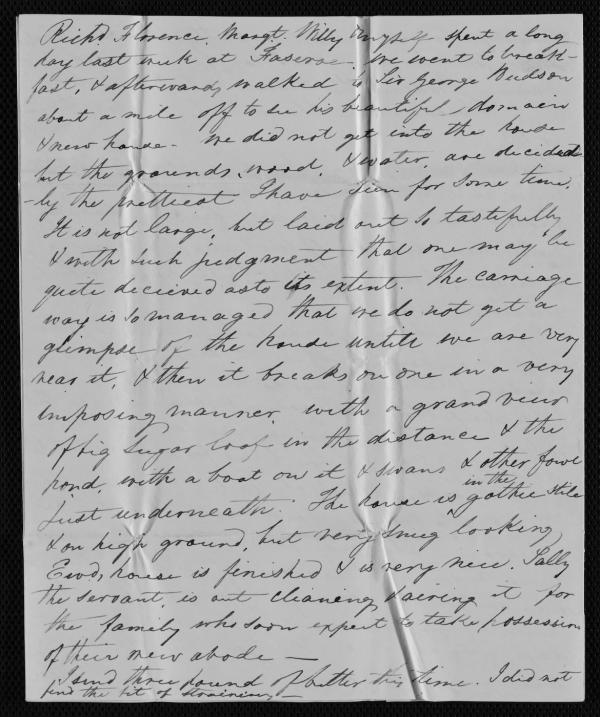 Richd Florence, Margt. Willy & myself spent a long
day last week at Faserae. We went to break-
fast, & afterwards walked to Sir George Hudson
about a mile off to see his beautiful domain
& new house - We did not get into the house
but the grounds, wood, & water, are decided-
-ly the prettiest I have seen for some time.
It is not large, but laid out so tastefully
& with such judgment that one may be
quite decieved as to its extent. The carriage
way is so managed that we do not get a
glimpse of the house untill we are very
near it, & then it breaks on one in a very
imposing manner, with a grand view
of big Sugar loaf in the distance & the
pond, with a boat on it & swans & other fowl
just underneath. The house is in the gothic stile
& on high ground, but very snug looking,
Ewd, house is finished & is very nice. Sally
the servant, is out cleaning & airing it for
the family who soon expect to take possession
of their new abode —
I send three pound of butter this time. I did not
find the bit of straining —